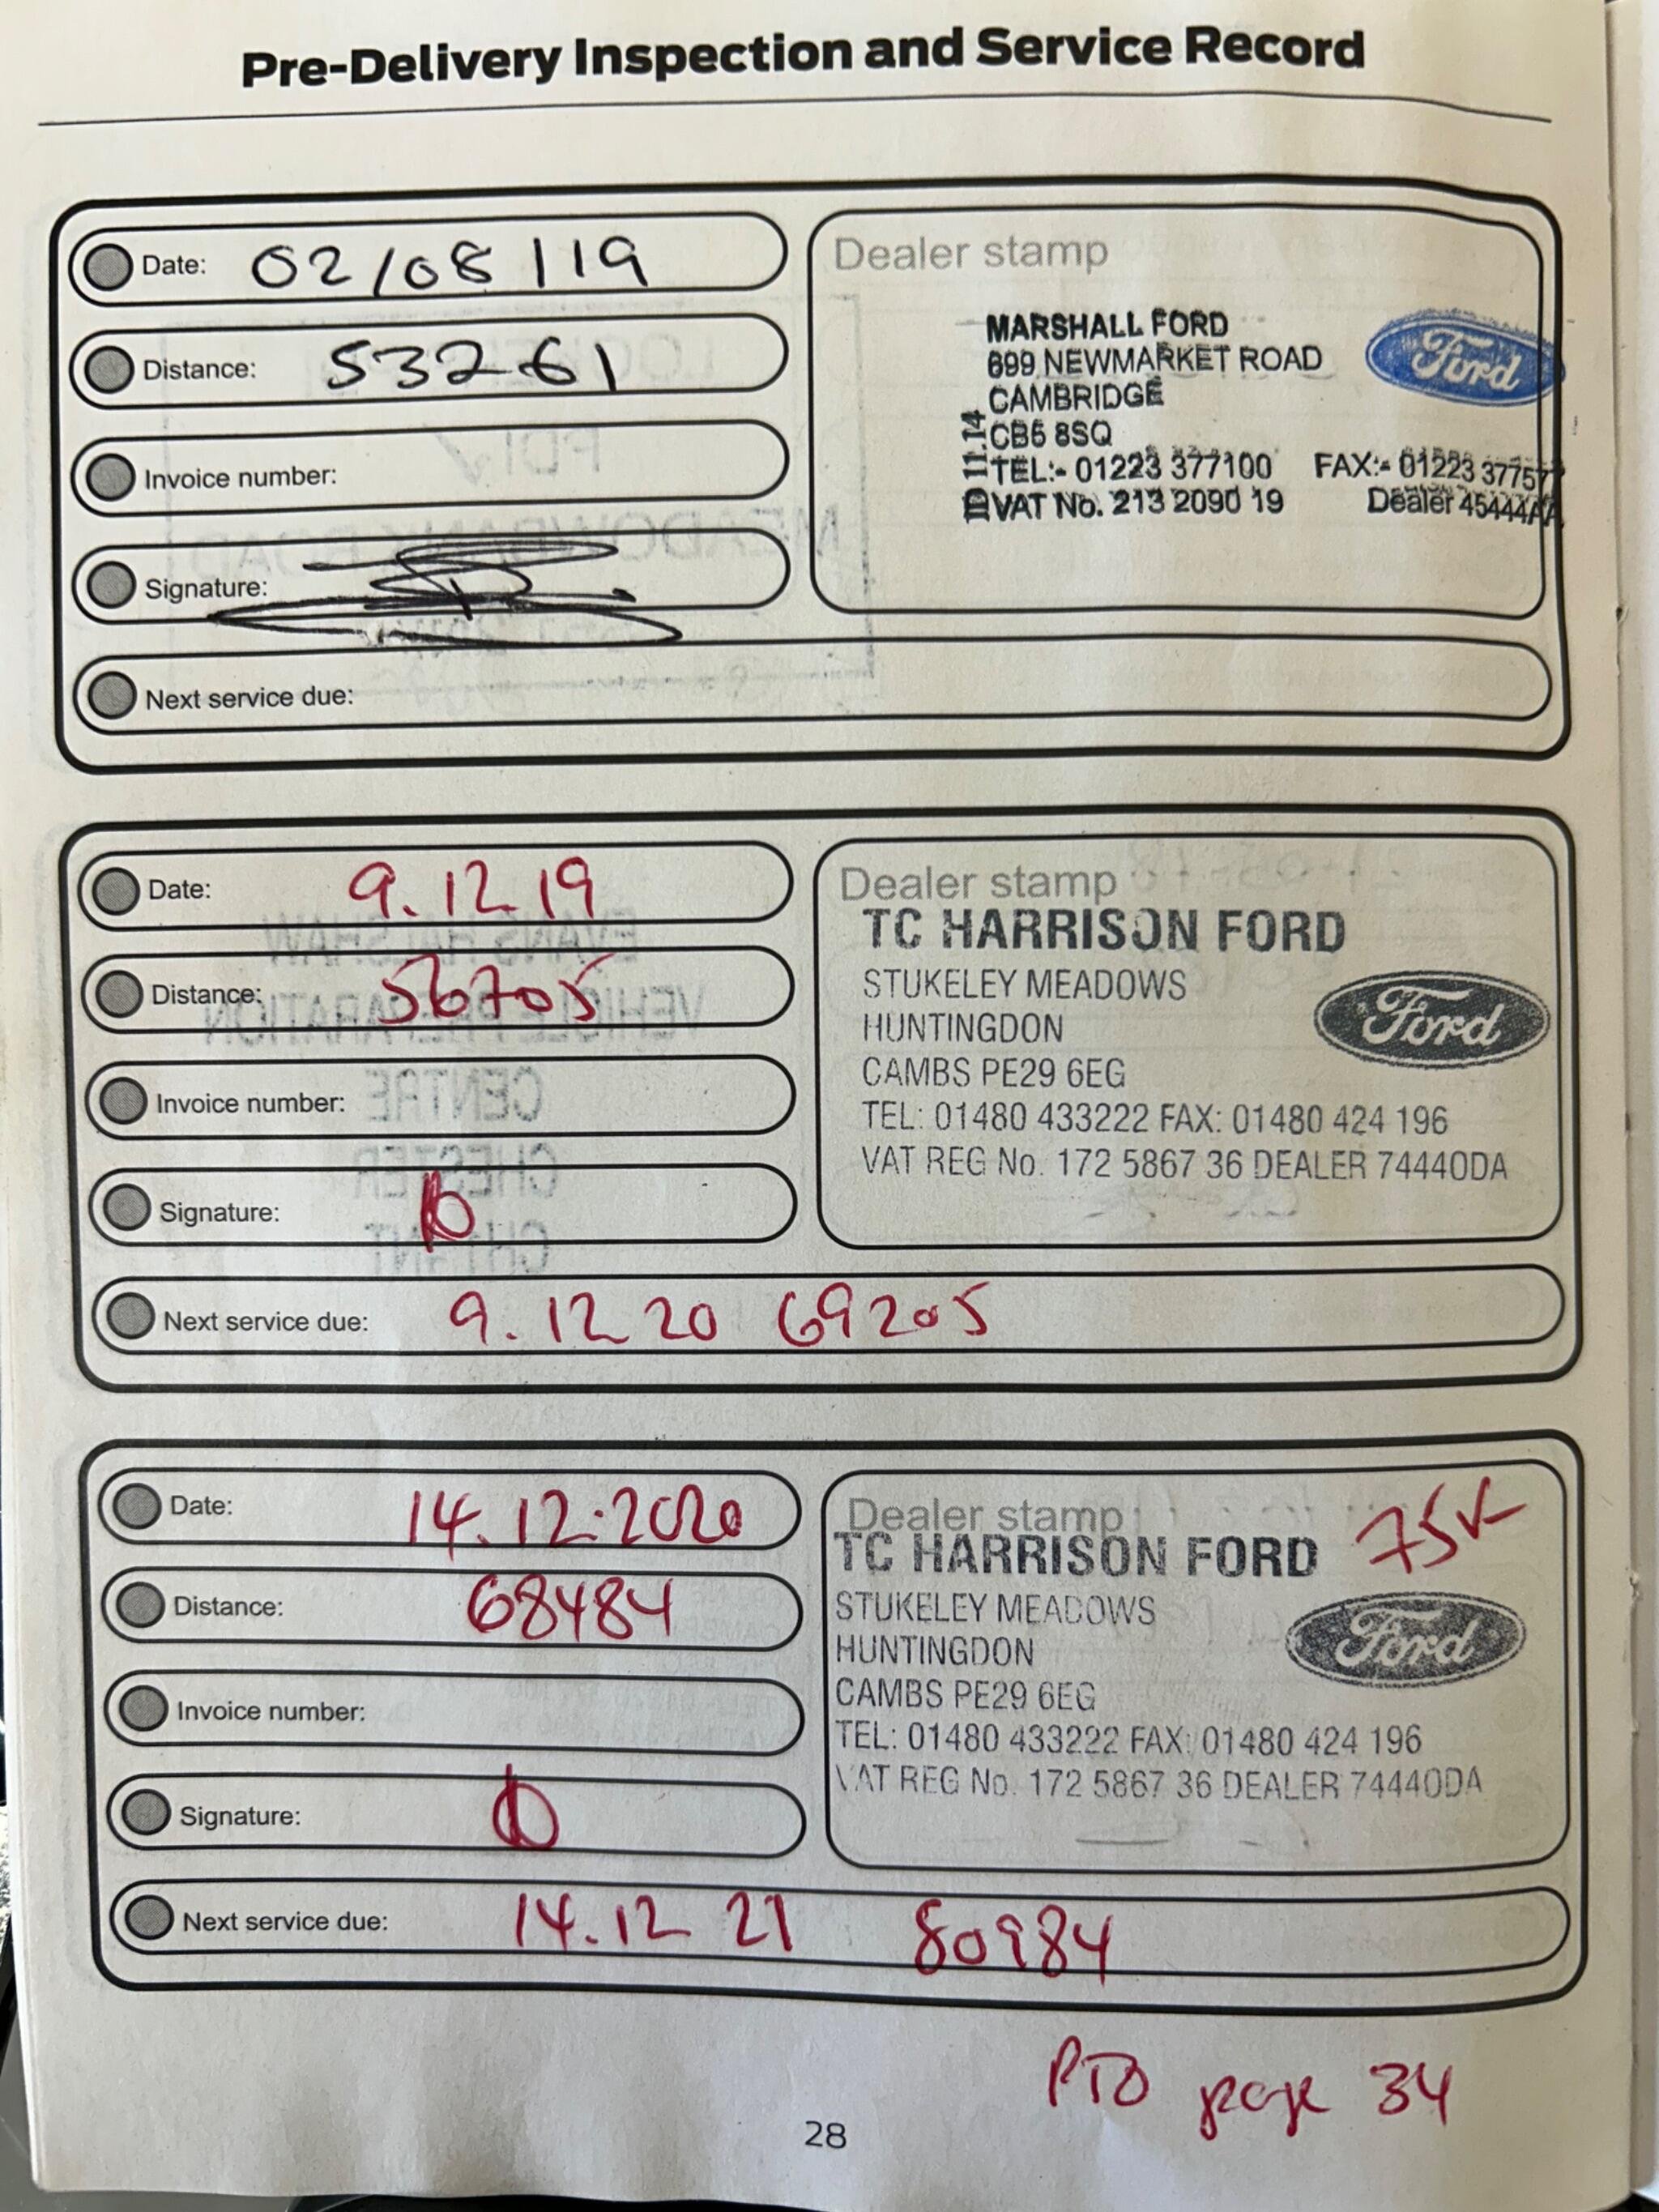 Pre-Delivery Inspection and Service Record
Date: 02/08/19
Distance: 53261
Invoice number:
Signature:
Next service due:
Dealer stamp
MARSHALL FORD
699 NEWMARKET ROAD
CAMBRIDGE
CB5 8SQ
TEL:- 01223 377100 FAX:- 01223 37757
VAT No. 213 2090 19 Dealer 45444AA
ID 11.14
Ford
Date: 9.12 19
Distance: 56705
Invoice number:
Signature:
Next service due: 9.12 20 69205
Dealer stamp
TC HARRISON FORD
STUKELEY MEADOWS
HUNTINGDON
CAMBS PE29 6EG
TEL: 01480 433222 FAX: 01480 424 196
VAT REG No. 172 5867 36 DEALER 74440DA
Ford
Date: 14.12.2020
Distance: 68484
Invoice number:
Signature:
Next service due: 14.12 21 80984
Dealer stamp
75K
TC HARRISON FORD
STUKELEY MEADOWS
HUNTINGDON
CAMBS PE29 6EG
TEL: 01480 433222 FAX: 01480 424 196
VAT REG No. 172 5867 36 DEALER 74440DA
Ford
PTO page 34
28